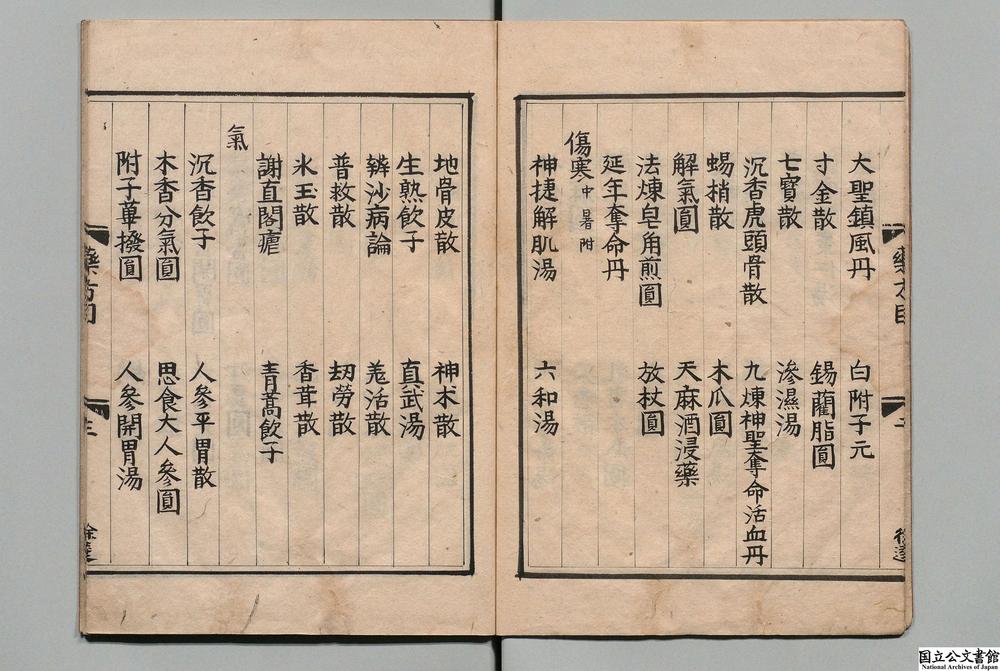 大聖鎮風丹　白附子元
寸金散　錫藺脂圓
七寶散　滲濕湯
沉香虎頭骨散　九煉神聖奪命活血丹
蝎梢散　木瓜圓
解氣圓　天麻酒浸藥
法煉皂角煎圓　放杖圓
延年奪命丹
傷寒中暑附
神捷解肌湯　六和湯
地骨皮散　神术散
生熟飲子　真武湯
辨沙病論　羗活散
普救散　劫勞散
氷玉散　香茸散
謝直閣瘧　青蒿飲子
氣
沉香飲子　人參平胃散
木香分氣圓　思食大人參圓
附子蓽撥圓　人參開胃湯
藥方目
国立公文書館
National Archives of Japan